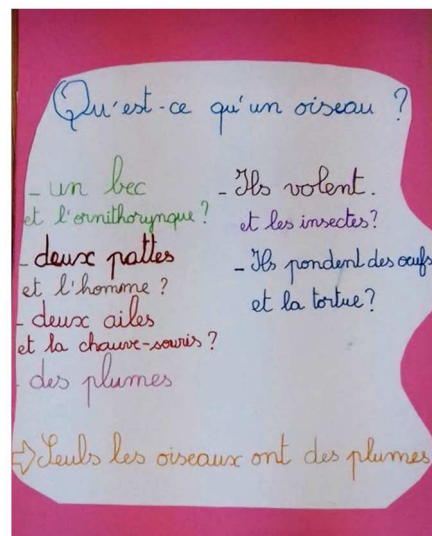 Qu'est-ce qu'un oiseau ?
- un bec
et l'ornithorynque ?
- deux pattes
et l'homme ?
- deux ailes
et la chauve-souris ?
- des plumes
- Ils volent.
et les insectes ?
- Ils pondent des œufs
et la tortue ?
⇨ Seuls les oiseaux ont des plumes